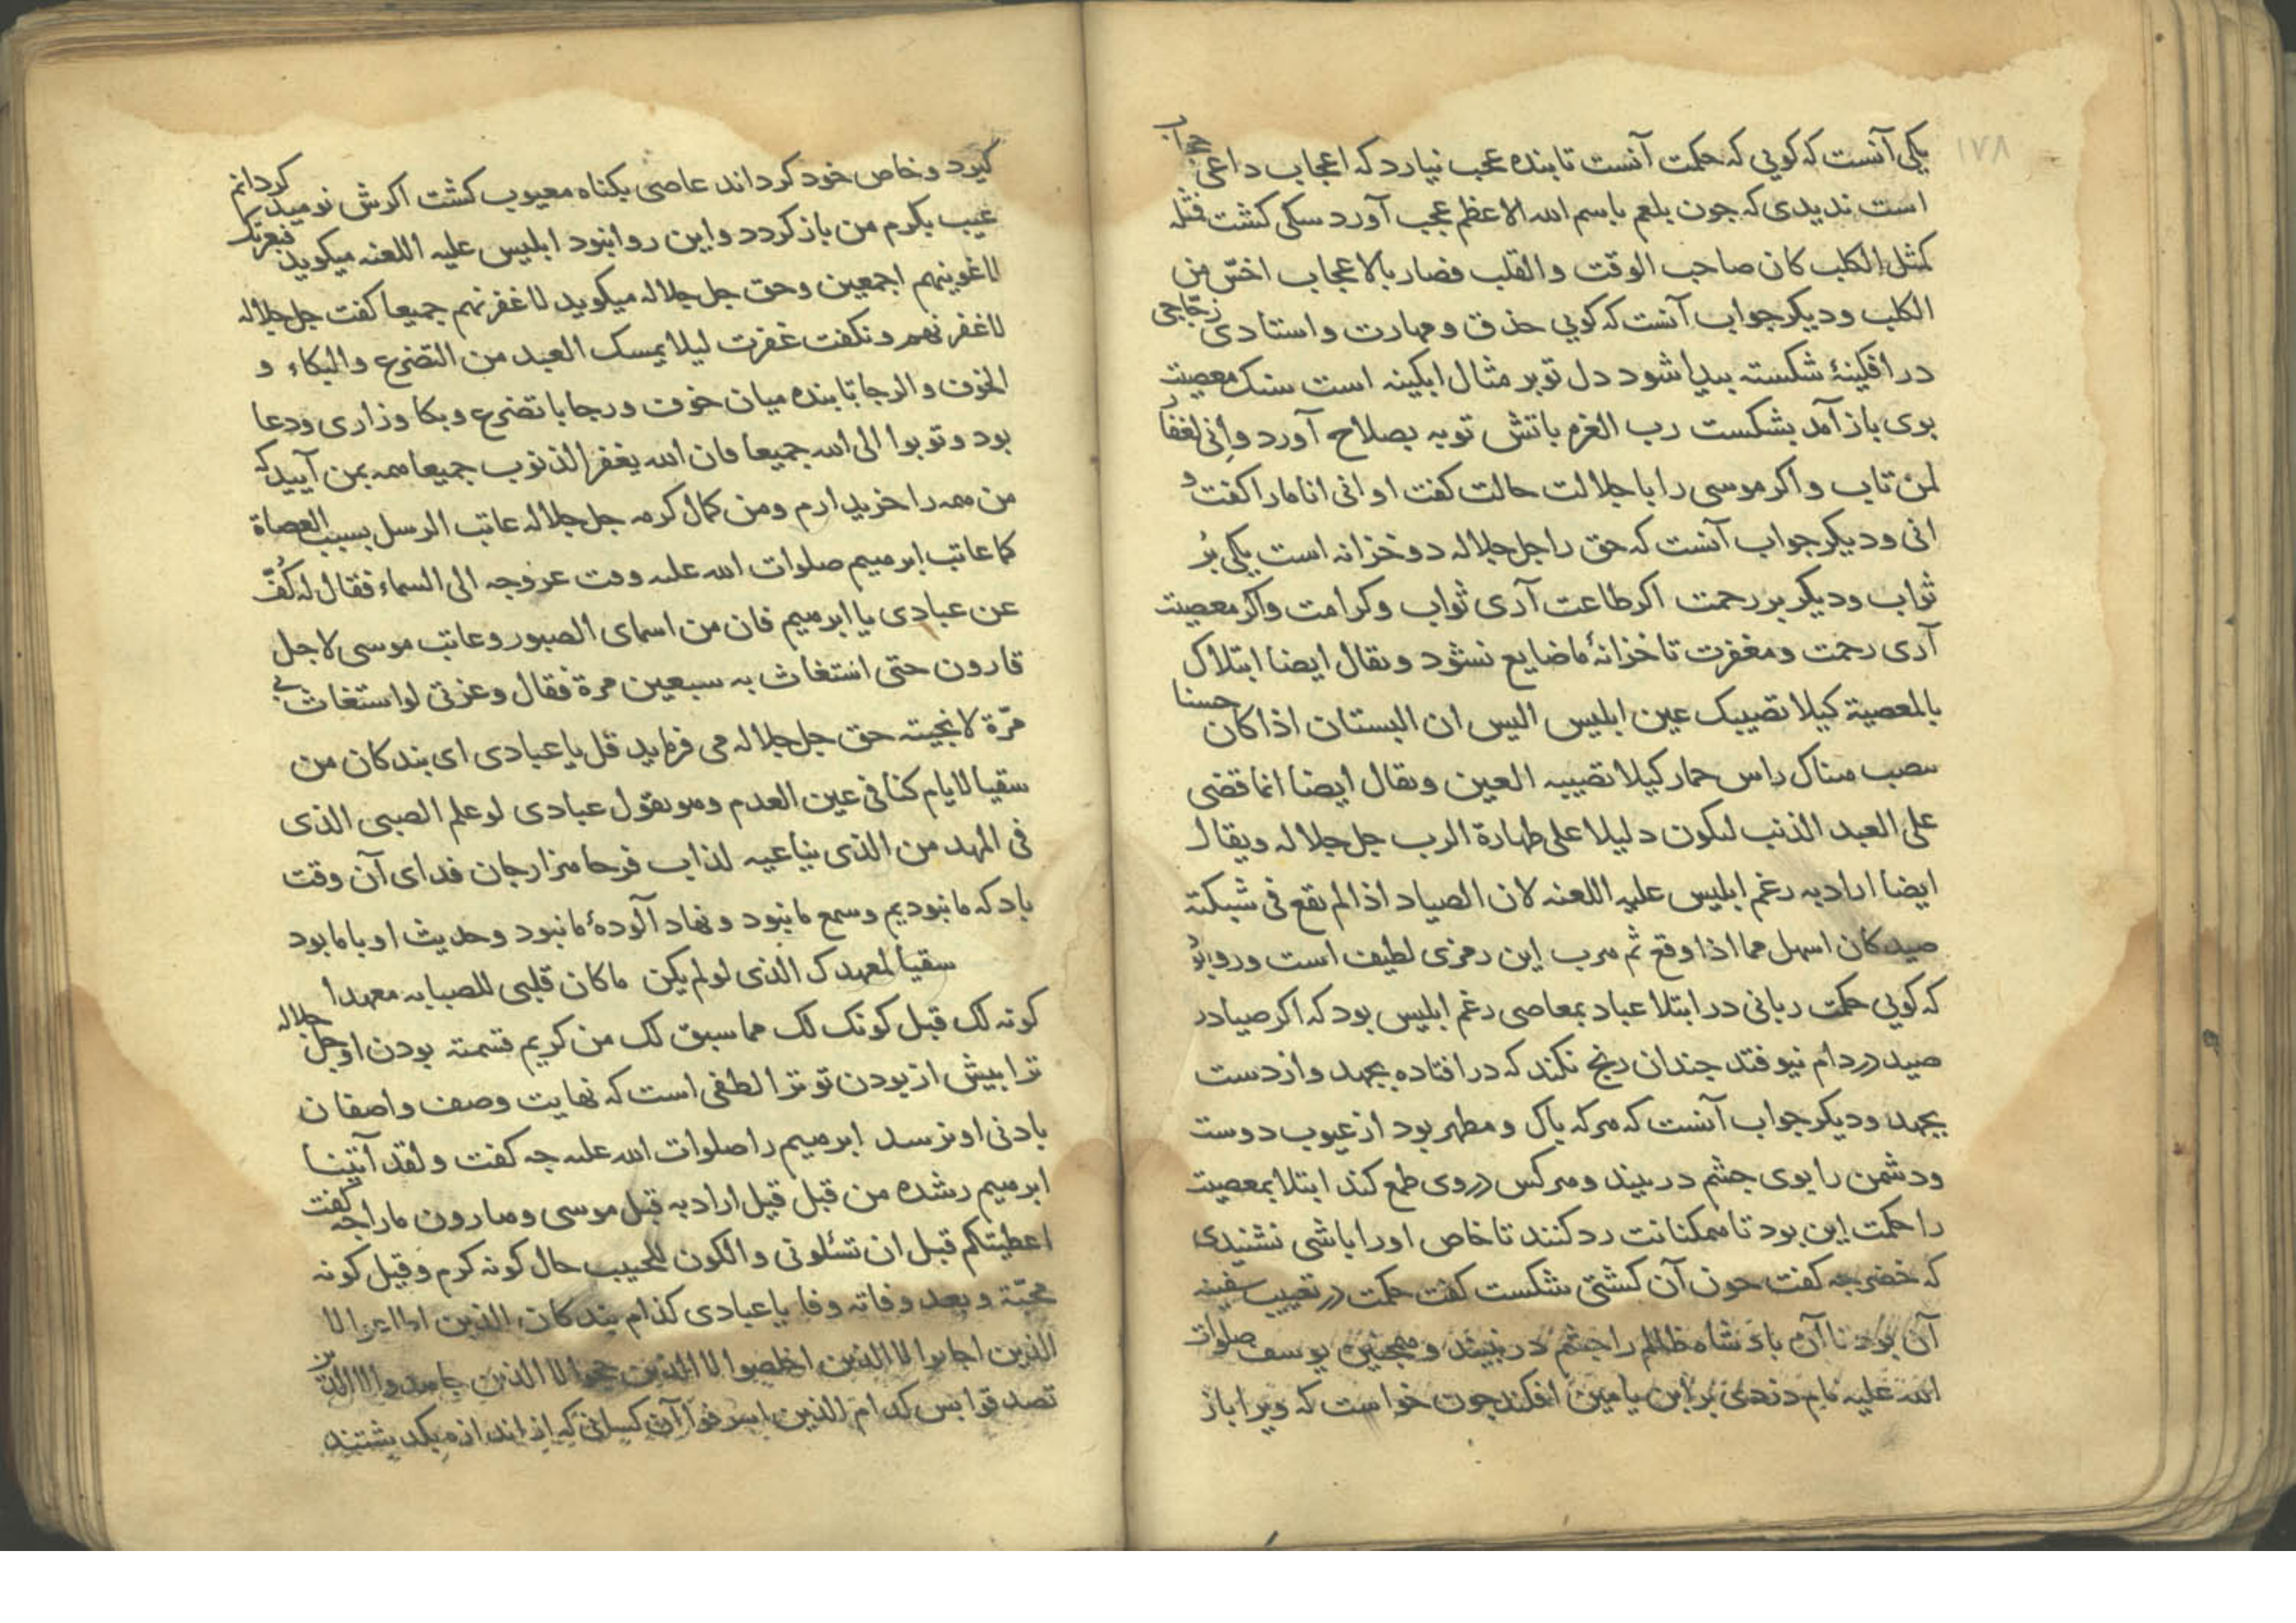 ١٧٨
یکی آنست که کویی که حکمت آنست تا بنده عجب نیارد که اعجاب داعی حجاب
است ندیدی که جون بلعم باسم الله الاعظم عجب آورد سکی کشت فمثله
کمثل الکلب کان صاحب الوقت والقلب فصار بالاعجاب اخسّ من
الکلب ودیکر جواب آنست که کویی حذق ومهارت واستادی زجّاجی
در افکینهٔ شکسته بیدا شود دل تو بر مثال ابکینه است سنک معصیت
بوی باز آمد بشکست رب العزه باتش توبه بصلاح آورد وانی لغفار
لمن تاب واکر موسی را با جلالت حالت کفت او انی انا ما را کفت و
انی ودیکر جواب آنست که حق را جل جلاله دو خزانه است یکی بُر
ثواب ودیکر بر رحمت اکر طاعت آری ثواب وکرامت واکر معصیت
آری رحمت ومغفرت تا خزانهٔ ما ضایع نشود ویقال ایضا ابتلاک
بالمعصیة کیلا تصیبک عین ابلیس الیس ان البستان اذا کان حسنا
ینصب هناک راس حمار کیلا تصیبه العین ویقال ایضا انما قضی
علی العبد الذنب لیکون دلیلا علی طهارة الرب جل جلاله ویقال
ایضا اراد به رغم ابلیس علیه اللعنه لان الصیاد اذا لم یقع فی شبکته
صید کان اسهل مما اذا وقع ثم هرب این رمزی لطیف است ورو بُوَد
که کویی حکمت ربانی در ابتلا عباد بمعاصی رغم ابلیس بود که اکر صیاد را
صید در دام نیوفتد جندان رنج نکند که در افتاده بجهد واز دست
بجهد ودیکر جواب آنست که هر که باک ومطهر بود از عیوب دوست
ودشمن را بوی جشم در بیند وهر کس در وی طمع کند ابتلا بمعصیت
را حکمت این بود تا همکنانت رد کنند تا خاص او را باشی نشنیدی
که خضر جه کفت جون آن کشتی شکست کفت حکمت در تعییب سفینه
آن بود تا آن بادشاه ظالم را جشم در نبیند وهمجنین یوسف صلوات
الله علیه نام دزدی بر ابن یامین افکند جون خواست که ویرا باز
کیرد وخاص خود کرداند عاصی بکناه معیوب کشت اکرش نومید کردانم
عیب بکرم من باز کردد واین روا نبود ابلیس علیه اللعنه میکوید فبعزتک
لاغوینهم اجمعین وحق جل جلاله میکوید لاغفرنهم جمیعا کفت جل جلاله
لاغفرنهم ونکفت غفرت لیلا یمسک العبد من التضرع والبکاء و
الخوف والرجا تا بنده میان خوف ورجا با تضرع وبکا وزاری ودعا
بود وتوبوا الی الله جمیعا فان الله یغفر الذنوب جمیعا همه بمن آیید که
من همه را خریدارم ومن کمال کرمه جل جلاله عاتب الرسل بسبب العصاة
کما عاتب ابرهیم صلوات الله علیه وقت عروجه الی السماء فقال له کُفّ
عن عبادی یا ابرهیم فان من اسمای الصبور وعاتب موسی لاجل
قارون حتی استغاث به سبعین مرة فقال وعزتی لو استغاث بی
مرّة لانجیته حق جل جلاله می فرماید قل یا عبادی ای بندکان من
سقیا لایام کنا فی عین العدم وهو یقول عبادی لو علم الصبی الذی
فی المهد من الذی یناغیه لذاب فرحا هزار جان فدای آن وقت
باد که ما نبودیم وسمع ما نبود ونهاد آلودهٔ ما نبود وحدیث او با ما بود
سقیا لمعهدک الذی لو لم یکن ما کان قلبی للصبابه معهدا
کونه لک قبل کونک لک مما سبق لک من کریم قسمته بودن او جل جلاله
ترا بیش از بودن تو ترا لطفی است که نهایت وصف واصفان
بادنی او نرسد ابرهیم را صلوات الله علیه جه کفت ولقد آتینا
ابرهیم رشده من قبل قیل اراد به قبل موسی وهارون ما را جه کفت
اعطیتکم قبل ان تسئلونی والکون للحبیب حال کونه کرم وقبل کونه
محبّة وبعد وفاته وفا یا عبادی کذام بندکان الذین
الذین اجابوا لا الذین اخلصوا لا الذین
تصدقوا بس کدام الذین اسرفوا آن کسانی که از اندازه بکذشتند